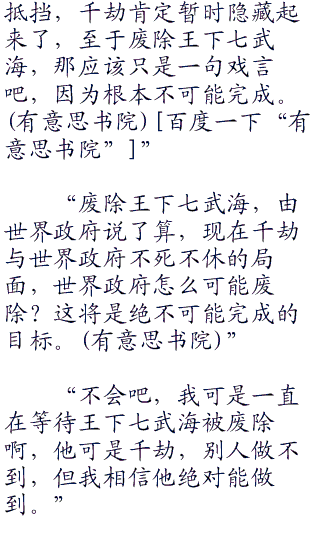 抵挡，千劫肯定暂时隐藏起
来了，至于废除王下七武
海，那应该只是一句戏言
吧，因为根本不可能完成。
(有意思书院)[百度一下“有
意思书院”]”
“废除王下七武海，由
世界政府说了算，现在千劫
与世界政府不死不休的局
面，世界政府怎么可能废
除？这将是绝不可能完成的
目标。(有意思书院)”
“不会吧，我可是一直
在等待王下七武海被废除
啊，他可是千劫，别人做不
到，但我相信他绝对能做
到。”